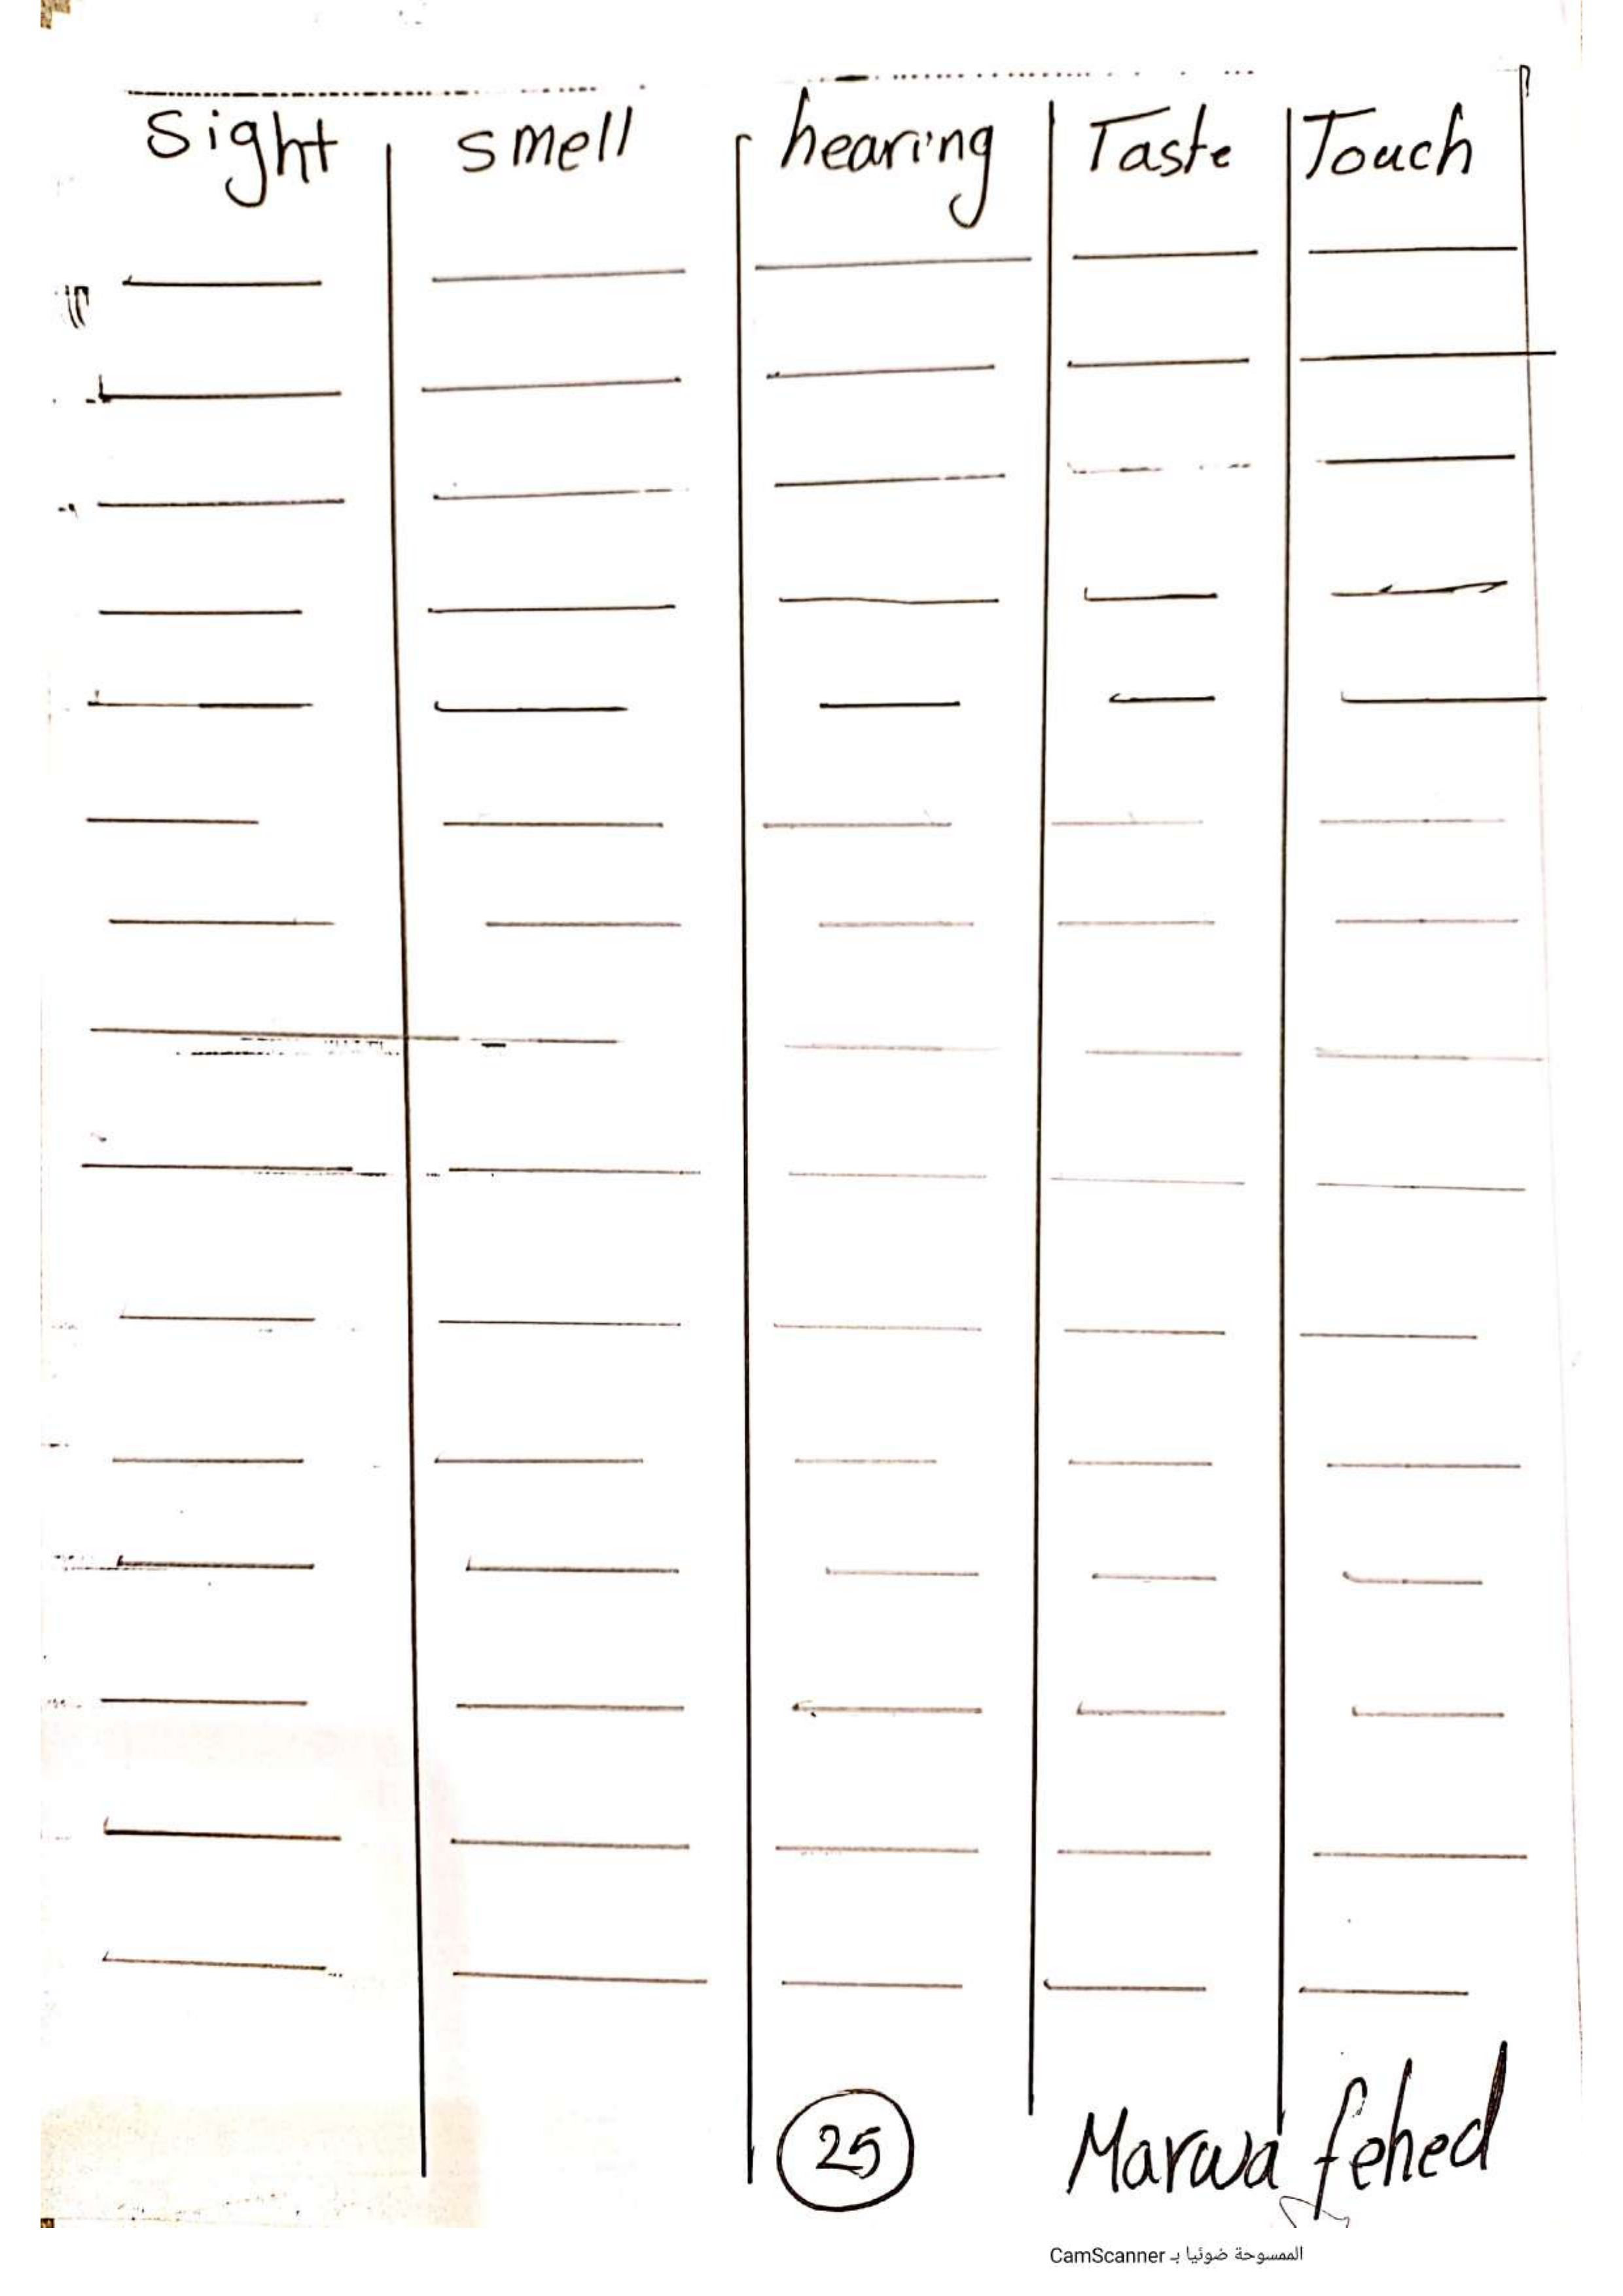 Sight smell hearing Taste Touch
25 Marwa fehed
الممسوحة ضوئيا بـ CamScanner